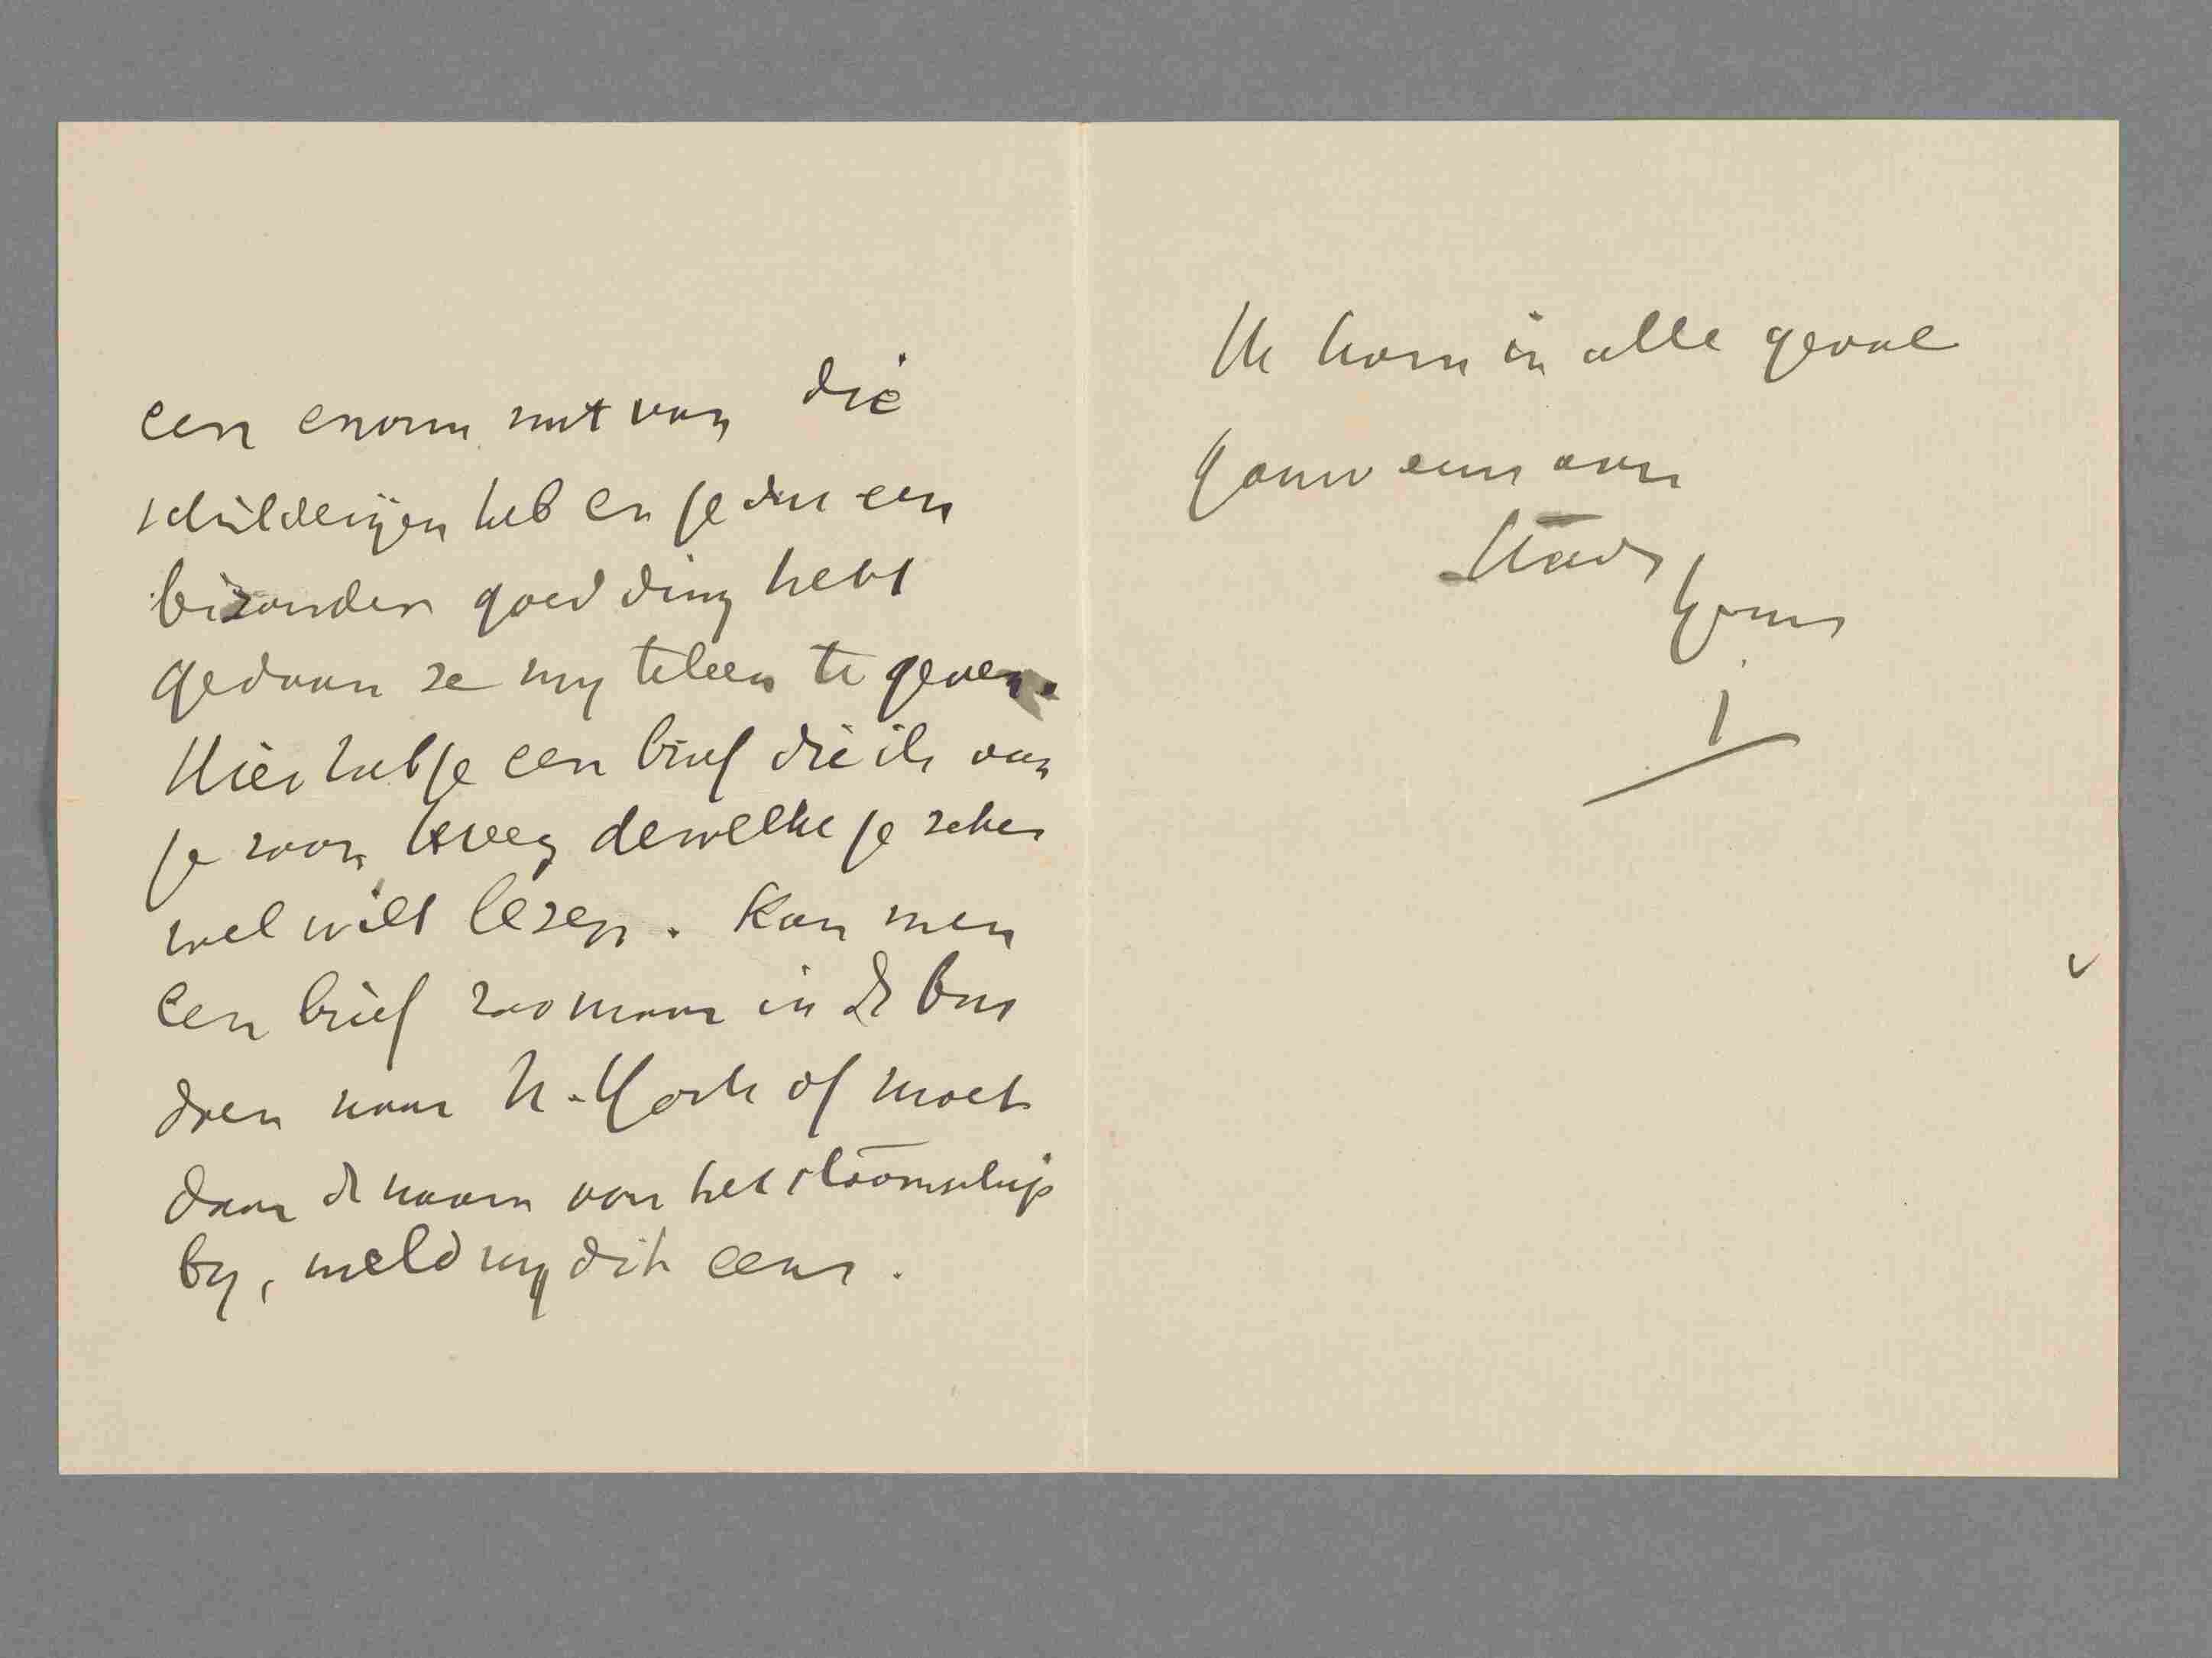 een enorm nut van die
schilderijen heb en je dus een
bizonder goed ding hebt
gedaan ze my teleen te geven.
Hier heb je een brief die ik van
je zoon kreeg dewelke je zeker
wel wilt lezen. Kan men
een brief zoo maar in de bus
doen naar N.-York of moet
daar de naam van het stoomschip
by, meld my dit eens.
Ik kom in alle geval
gauw eens aan
Steeds